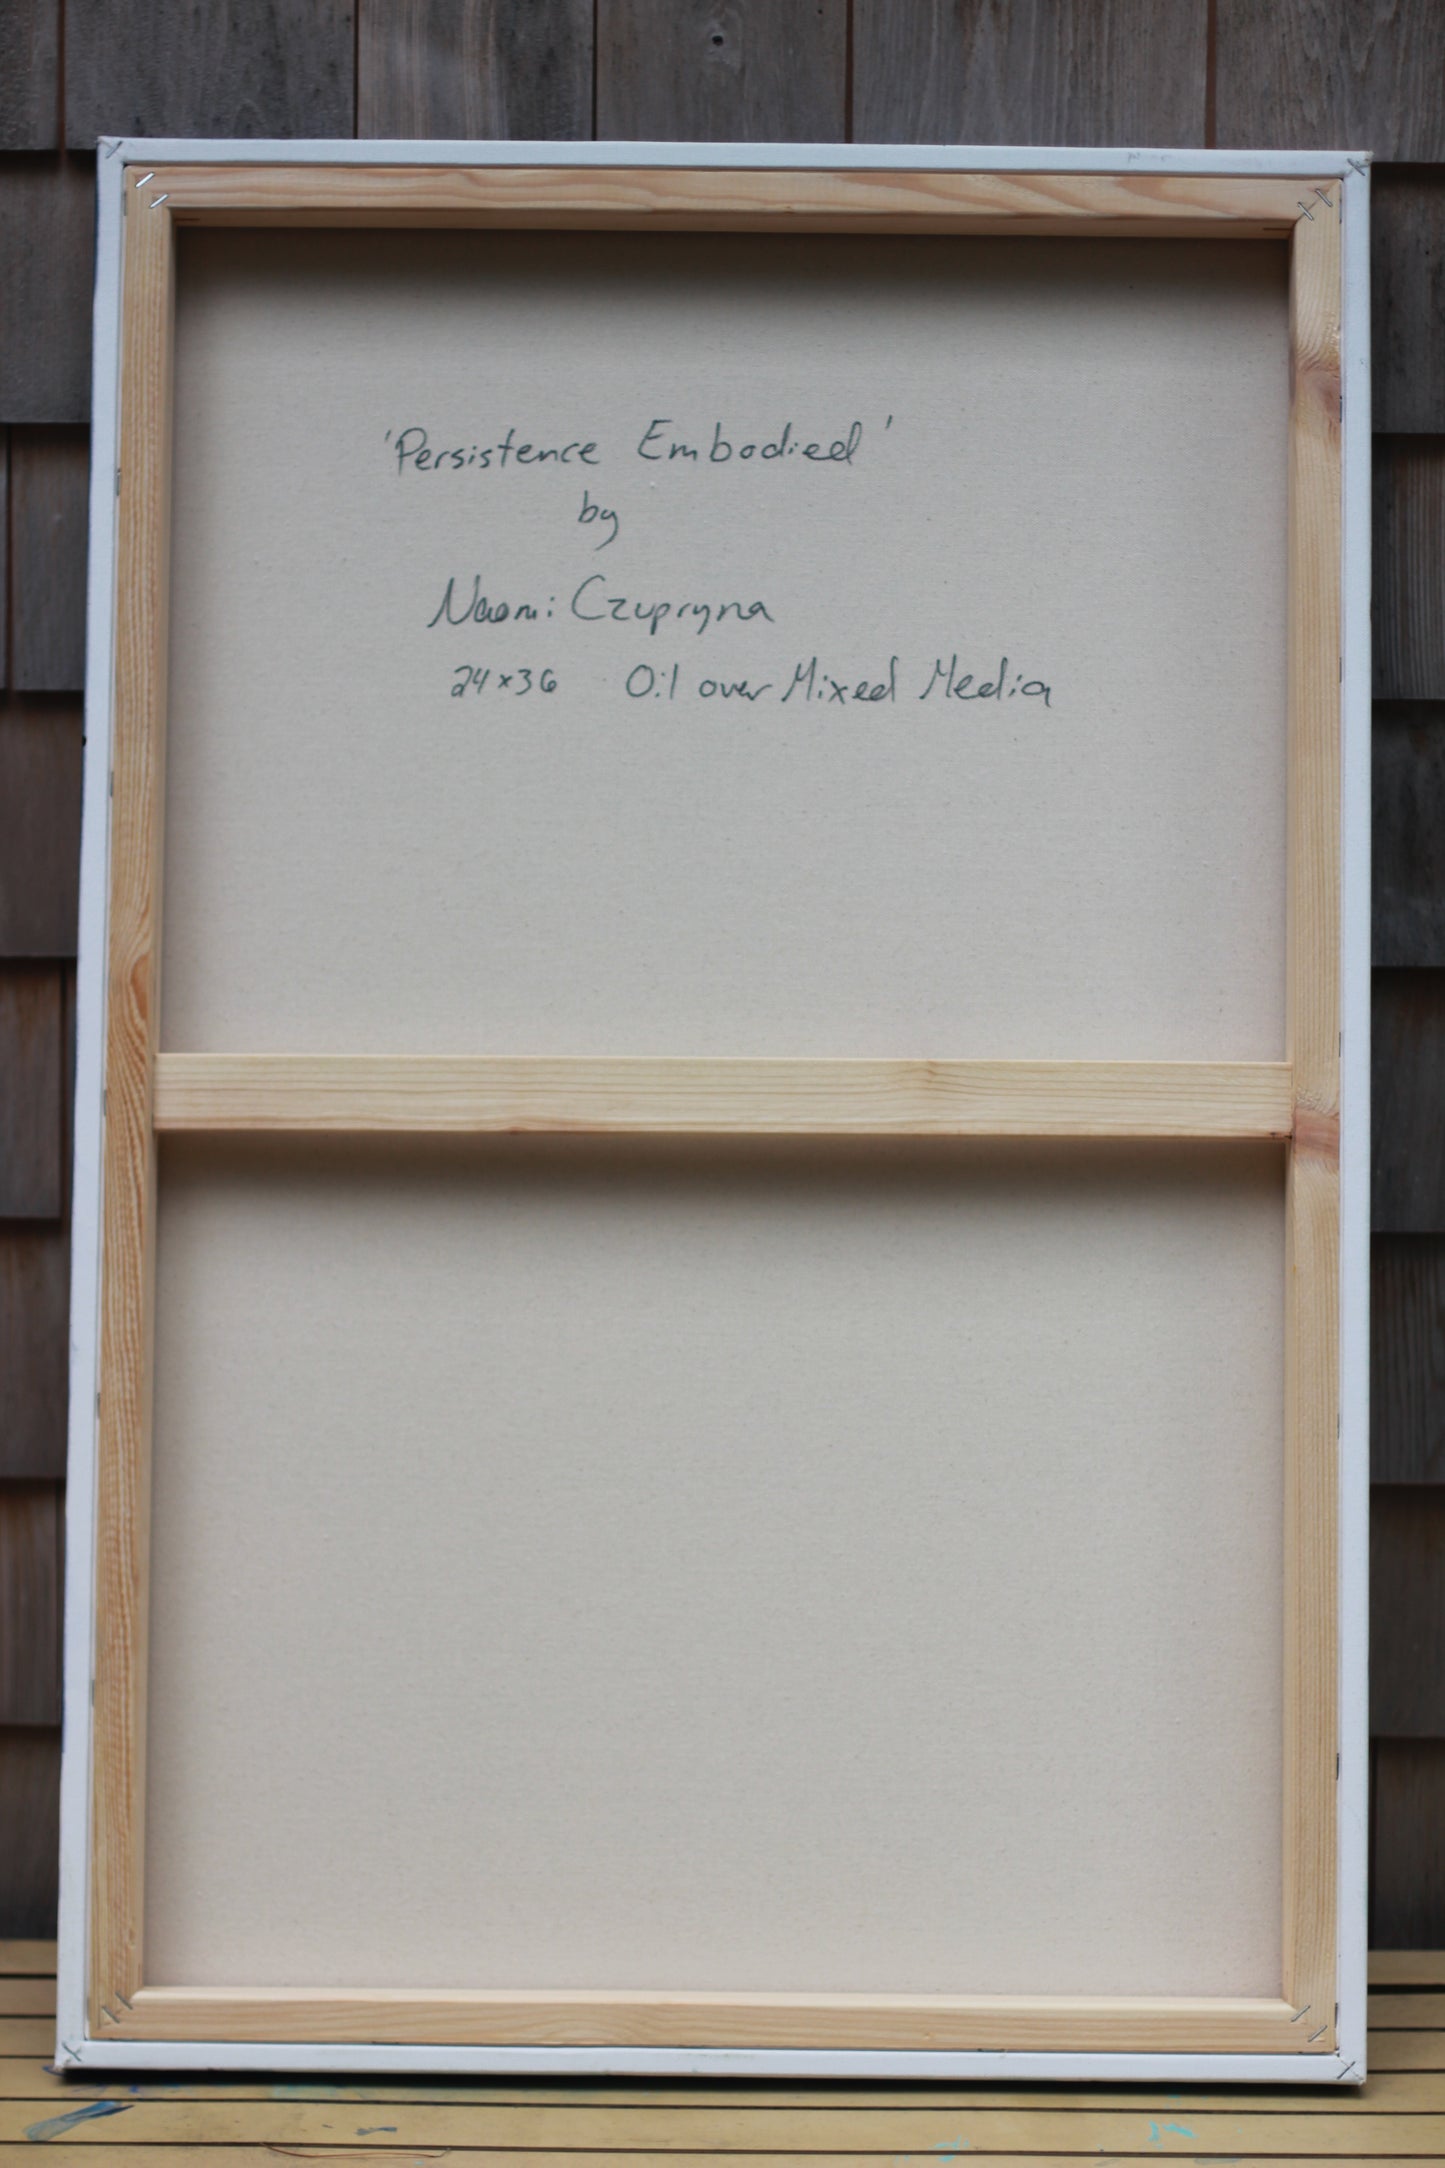 'Persistence Embodied'
by
Naomi Czupryna
24x36 Oil over Mixed Media